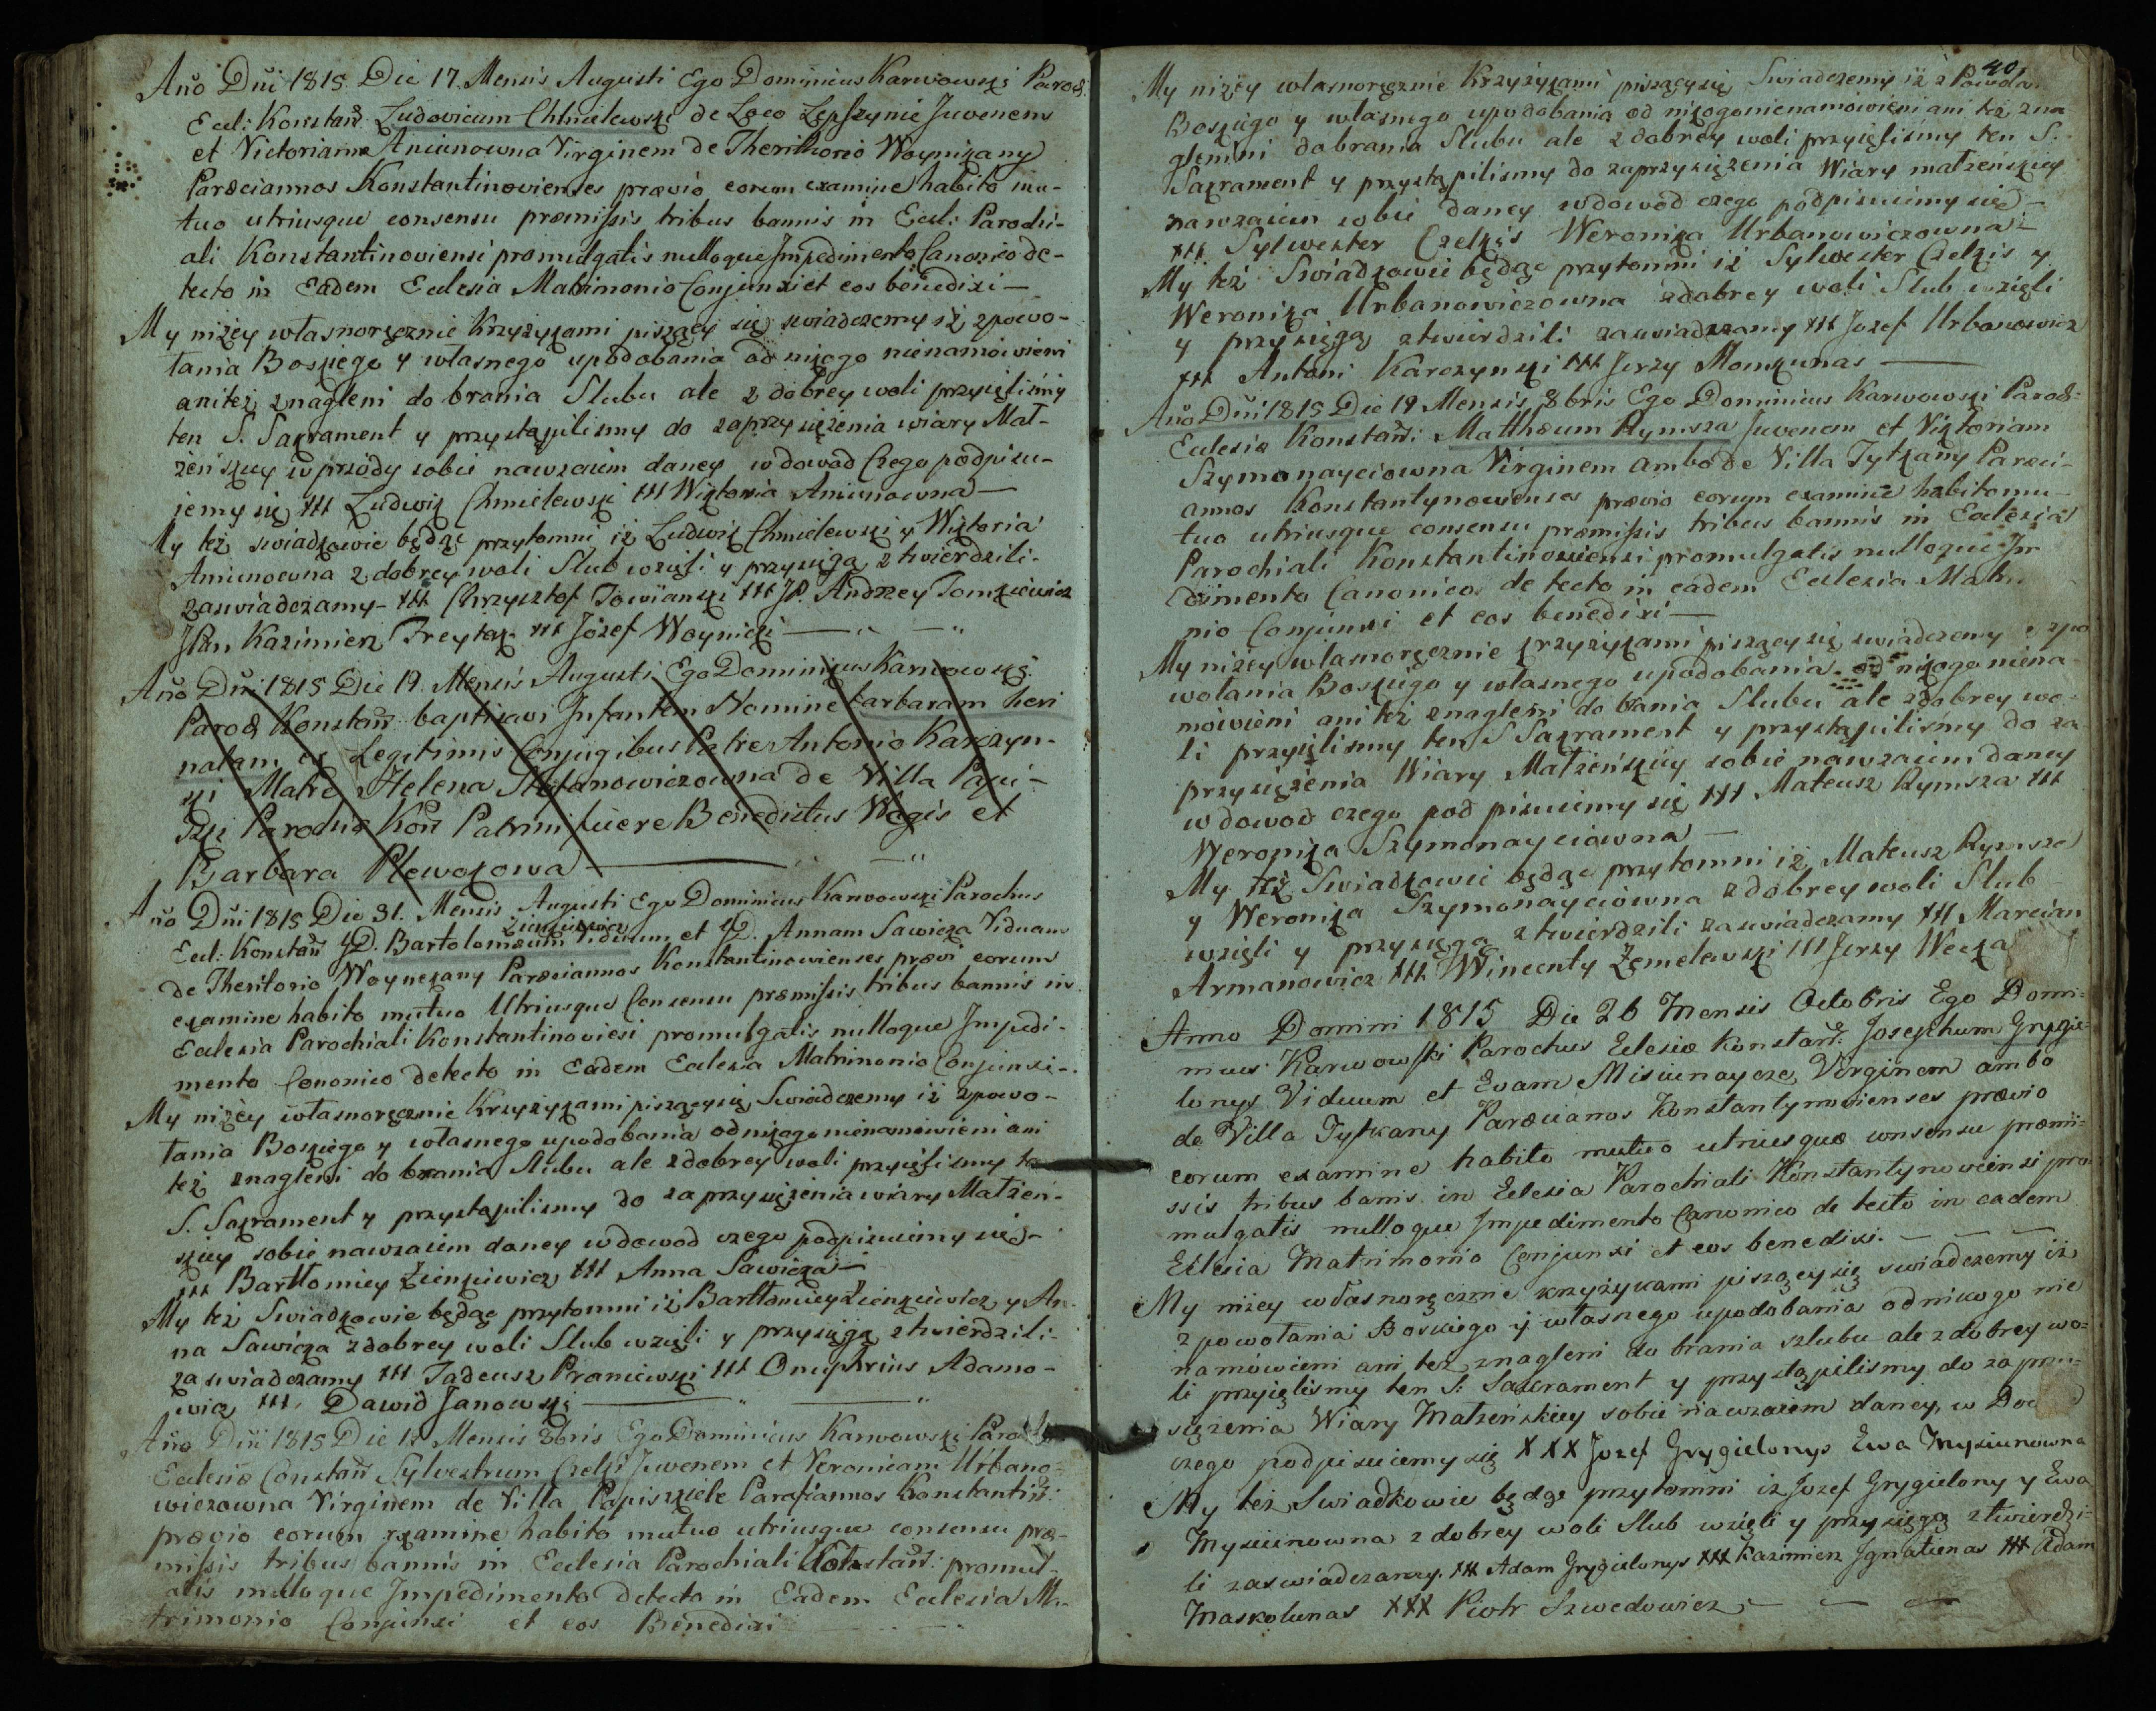 Año Dñi 1815 Die 17 Mensis Augusti Ego Dominicus Karwowski Paroch:
Eccl: Konstañ Ludovicum Chmielewski de Loco Lepszynie Juvenem
et Victoriam Aniunowna Virginem de Therithorio Woynikany
Parœciannos Konstantinovienses prævio eorum examine habito mu-
tuo utriusque consensu præmissis tribus bannis in Eccl: Parochi-
ali Konstantinoviensi promulgatis nulloque Impedimento Canonico de-
tecto in Eadem Eclesia Matrimonio Conjunxi et eos benedixi —
My niżey własnoręcznie Krzyżykami piszący się swiadczemy iż zpowo-
łania Boskiego y własnego upodobania od nikogo nienamowieni
aniteż znagleni do brania Slubu ale z dobrey woli przyieliśmy
ten S. Sakrament y przystąpilismy do zaprzysiężenia wiary Mał-
żeńskiey wprzódy sobie nawzaiem daney wdowod Czego podpisu-
iemy się ††† Ludwik Chmielewski ††† Wiktoria Aniunowna —
My też swiadkowie będąc przytomni iż Ludwik Chmielewski y Wiktoria
Aniunowna z dobrey woli Slub wzieli y przysięgą ztwierdzili-
zaswiadczamy - ††† Chrzysztof Towiański ††† JP. Andrzey Tomkiewicz
JPan Kazimierz Freytak ††† Józef Woynicki —
Año Dñi 1815 Die 19 Mensis Augusti Ego Dominicus Karwowski
Paroch Konstañ baptisavi Infantem Nomine Barbaram heri
natam ex Legitimis Conjugibus Patre Antonio Karczyn-
ski Matre Helena Stefanowiczowna de Villa Papi-
szki Parochiæ Koñ Patrini fuere Benedictus Wogis et
Barbara Plewokowa —
Año Dñi 1815 Die 31. Mensis Augusti Ego Dominicus Karwowski Parochus
Zienkiewicz
Ecel: Konstañ GD. Bartolomæum Viduum et GD. Annam Sawicka Viduam
de Theritorio Woynekany Parœciannos Konstantinowienses prævi eorum
examine habito mutuo Utriusque Consensu præmissis tribus bannis in
Ecclesia Parochiali Konstantinoviesi promulgatis nulloque Impedi-
mento Cononico detecto in Eadem Ecclesia Matrimonio Conjunxi-
My niżey własnoręcznie Krzyżykami piszący się Swiadczemy iż zpowo-
łania Boskiego y własnego upodobania od nikogo nienamowieni ani
też znagleni do brania slubu ale zdobrey woli przyieliśmy te
S. Sakrament y przystąpilismy do zaprzysiężenia wiary Małżeń-
skiey sobie nawzaiem daney wdowod czego podpisuiemy się -
††† Bartłomiey Zienkiewicz ††† Anna Sawicka —
My też Swiadkowie będąc przytomni iż Bartłomiey Zienkiewicz y An-
na Sawicka zdobrey woli Slub wzieli y przysięgą ztwierdzili-
zaswiadczamy ††† Tadeusz Praniewski ††† Onuphrius Adamo-
wicz ††† Dawid Janowski —
Año Dñi 1815 Die 12 Mensis 8bris Ego Dominicus Karwowski Paro
Ecclesiæ Constañ Sylvestrum Czelkis Juvenem et Veronicam Urbano-
wiczowna Virginem de Villa Papiszkiele Parafiannos Konstantiñ:
prævio eorum examine habito mutuo utriusque consensu præ-
missis tribus bannis in Ecclesia Parochiali Konstañ: promul-
atis nulloque Impedimento Detecto in Eadem Ecclesia Ma-
trimonio Conjunxi et eos Benedixi
40
My niżey własnoręcznie Krzyżykami piszący się Swiadczemy iż z Powoła
Boskiego y własnego upodobania od nikogo nienamowieni ani też zna
glenini dobrania Slubu ale z dobrey woli przyieliśmy ten S.
Sakrament y przystąpilismy do zaprzysiężenia Wiary małżenskiey
nawzaiem sobie daney wdowód czego podpisuiemy się —
††† Sylwester Czelkis Weronika Urbanowiczowna -
My też Swiadkowie będąc przytomni iż Sylwester Czelkis y
Weronika Urbanowiczowna zdobrey woli Slub wzieli
y przysięgą ztwierdzili zaswiadczamy ††† Jozef Urbanowicz
††† Antoni Karczynski ††† Jerzy Momkunas —
Año Dñi 1815 Die 19 Mensis 8bris Ego Dominicus Karwowski Paroch:
Eclesiæ Konstañ: Matthæum Rymsza Juvenem et Viktoriam
Szymonayciowna Virginem ambo de Villa Tytkany Parœci-
annos Konstantynowienses prævio eorum examine habito mu-
tuo utriusque consensu præmissis tribus bannis in Ecclesia
Parochiali Konstantinowiensi promulgatis nulloque Im
dimento Canonico detecto in eadem Ecclesia Matri
nio Conjunxi et eos benedixi —
My niżey własnoręcznie krzyżykami piszący się swiadczemy zpo
wołania Boskiego y własnego upodobania od nikogo niena
mówieni ani też znagleni do brania Slubu ale zdobrey wo-
li przyieliśmy ten S Sakrament y przystąpilismy do za
przysiężenia Wiary Małżeńskiey sobie nawzaiem daney
wdowod czego podpisuiemy się ††† Mateusz Rymsza †††
Weronika Szymonayciowna —
My też Swiadkowie będąc przytomni iż Mateusz Rymsza
y Weronika Szymonayciowna zdobrey woli Slub
wzieli y przysięgą ztwierdzili zaswiadczamy ††† Marcian
Armanowicz ††† Wincenty Zemelewski ††† Jerzy Wecka
Anno Domini 1815 Die 26 Mensis Octobris Ego Domi-
nicus Karwowski Parochus Eclesiæ Konstañ: Josephum Grygie-
lonys Viduum et Evam Misiunaycze Virginem ambo
de Villa Tytkany Parœcianos Konstantynovienses prævio
eorum examine habito mutuo utriusque consensu præmi-
ssis tribus banis in Eclesia Parochiali Konstantynowiensi pro
mulgatis nulloque Impedimento Canonico detecto in eadem
Eclesia Matrimonio Conjunxi et eos benedixi. —
My niżey własnoręcznie krzyżykami piszący się swiadczemy iż
z powołania Boskiego y własnego upodobania odnikogo nie
namówieni ani też znagleni do brania szlubu ale zdobrey wo-
li przyieliśmy ten S: Sakrament y przystąpilismy do zaprzy-
siężenia Wiary Małżeńskiey sobie nawzaiem daney, w Do
czego podpisuiemy się XXX Jozef Grygielonys Ewa Mysiunowna
My też Swiadkowie będąc przytomni iż Jozef Grygielony y Ewa
Mysiunowna zdobrey woli Slub wzięli y przysięgą ztwierdzi-
li zaswiadczamy. ††† Adam Grygielonys ††† Kazimierz Ignatunas ††† Adam
Maskolunas XXX Piotr Szwedowicz —